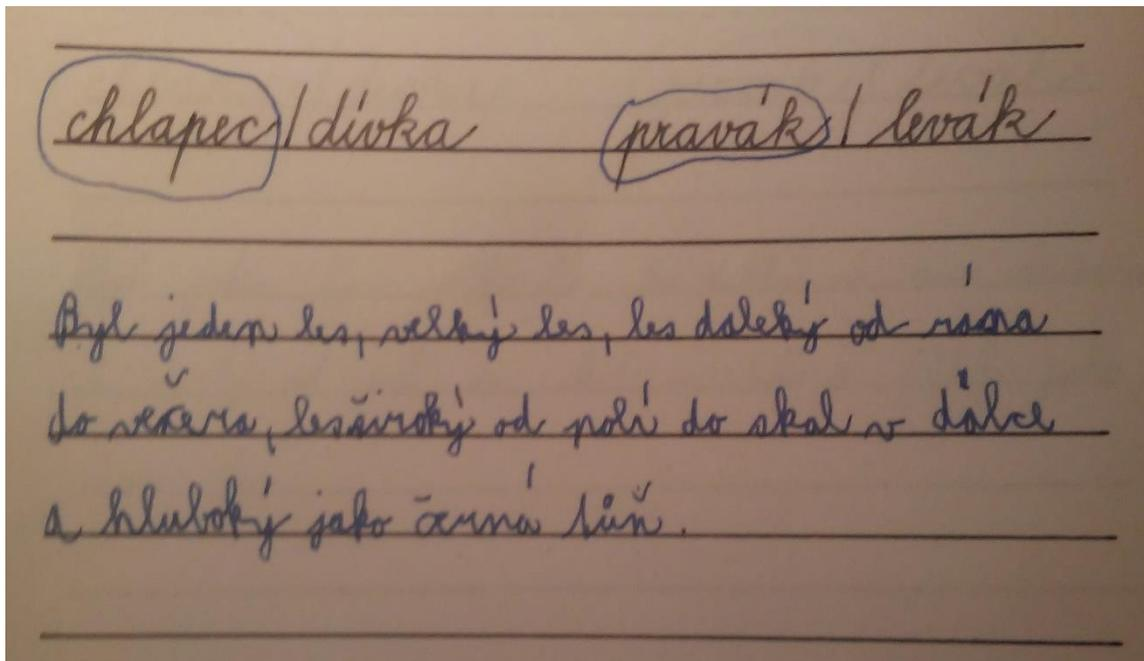 chlapec / dívka pravák / levák
Byl jeden les, velký les, les daleký od rána
do večera, les široký od polí do skal v dálce
a hluboký jako černá tůň.